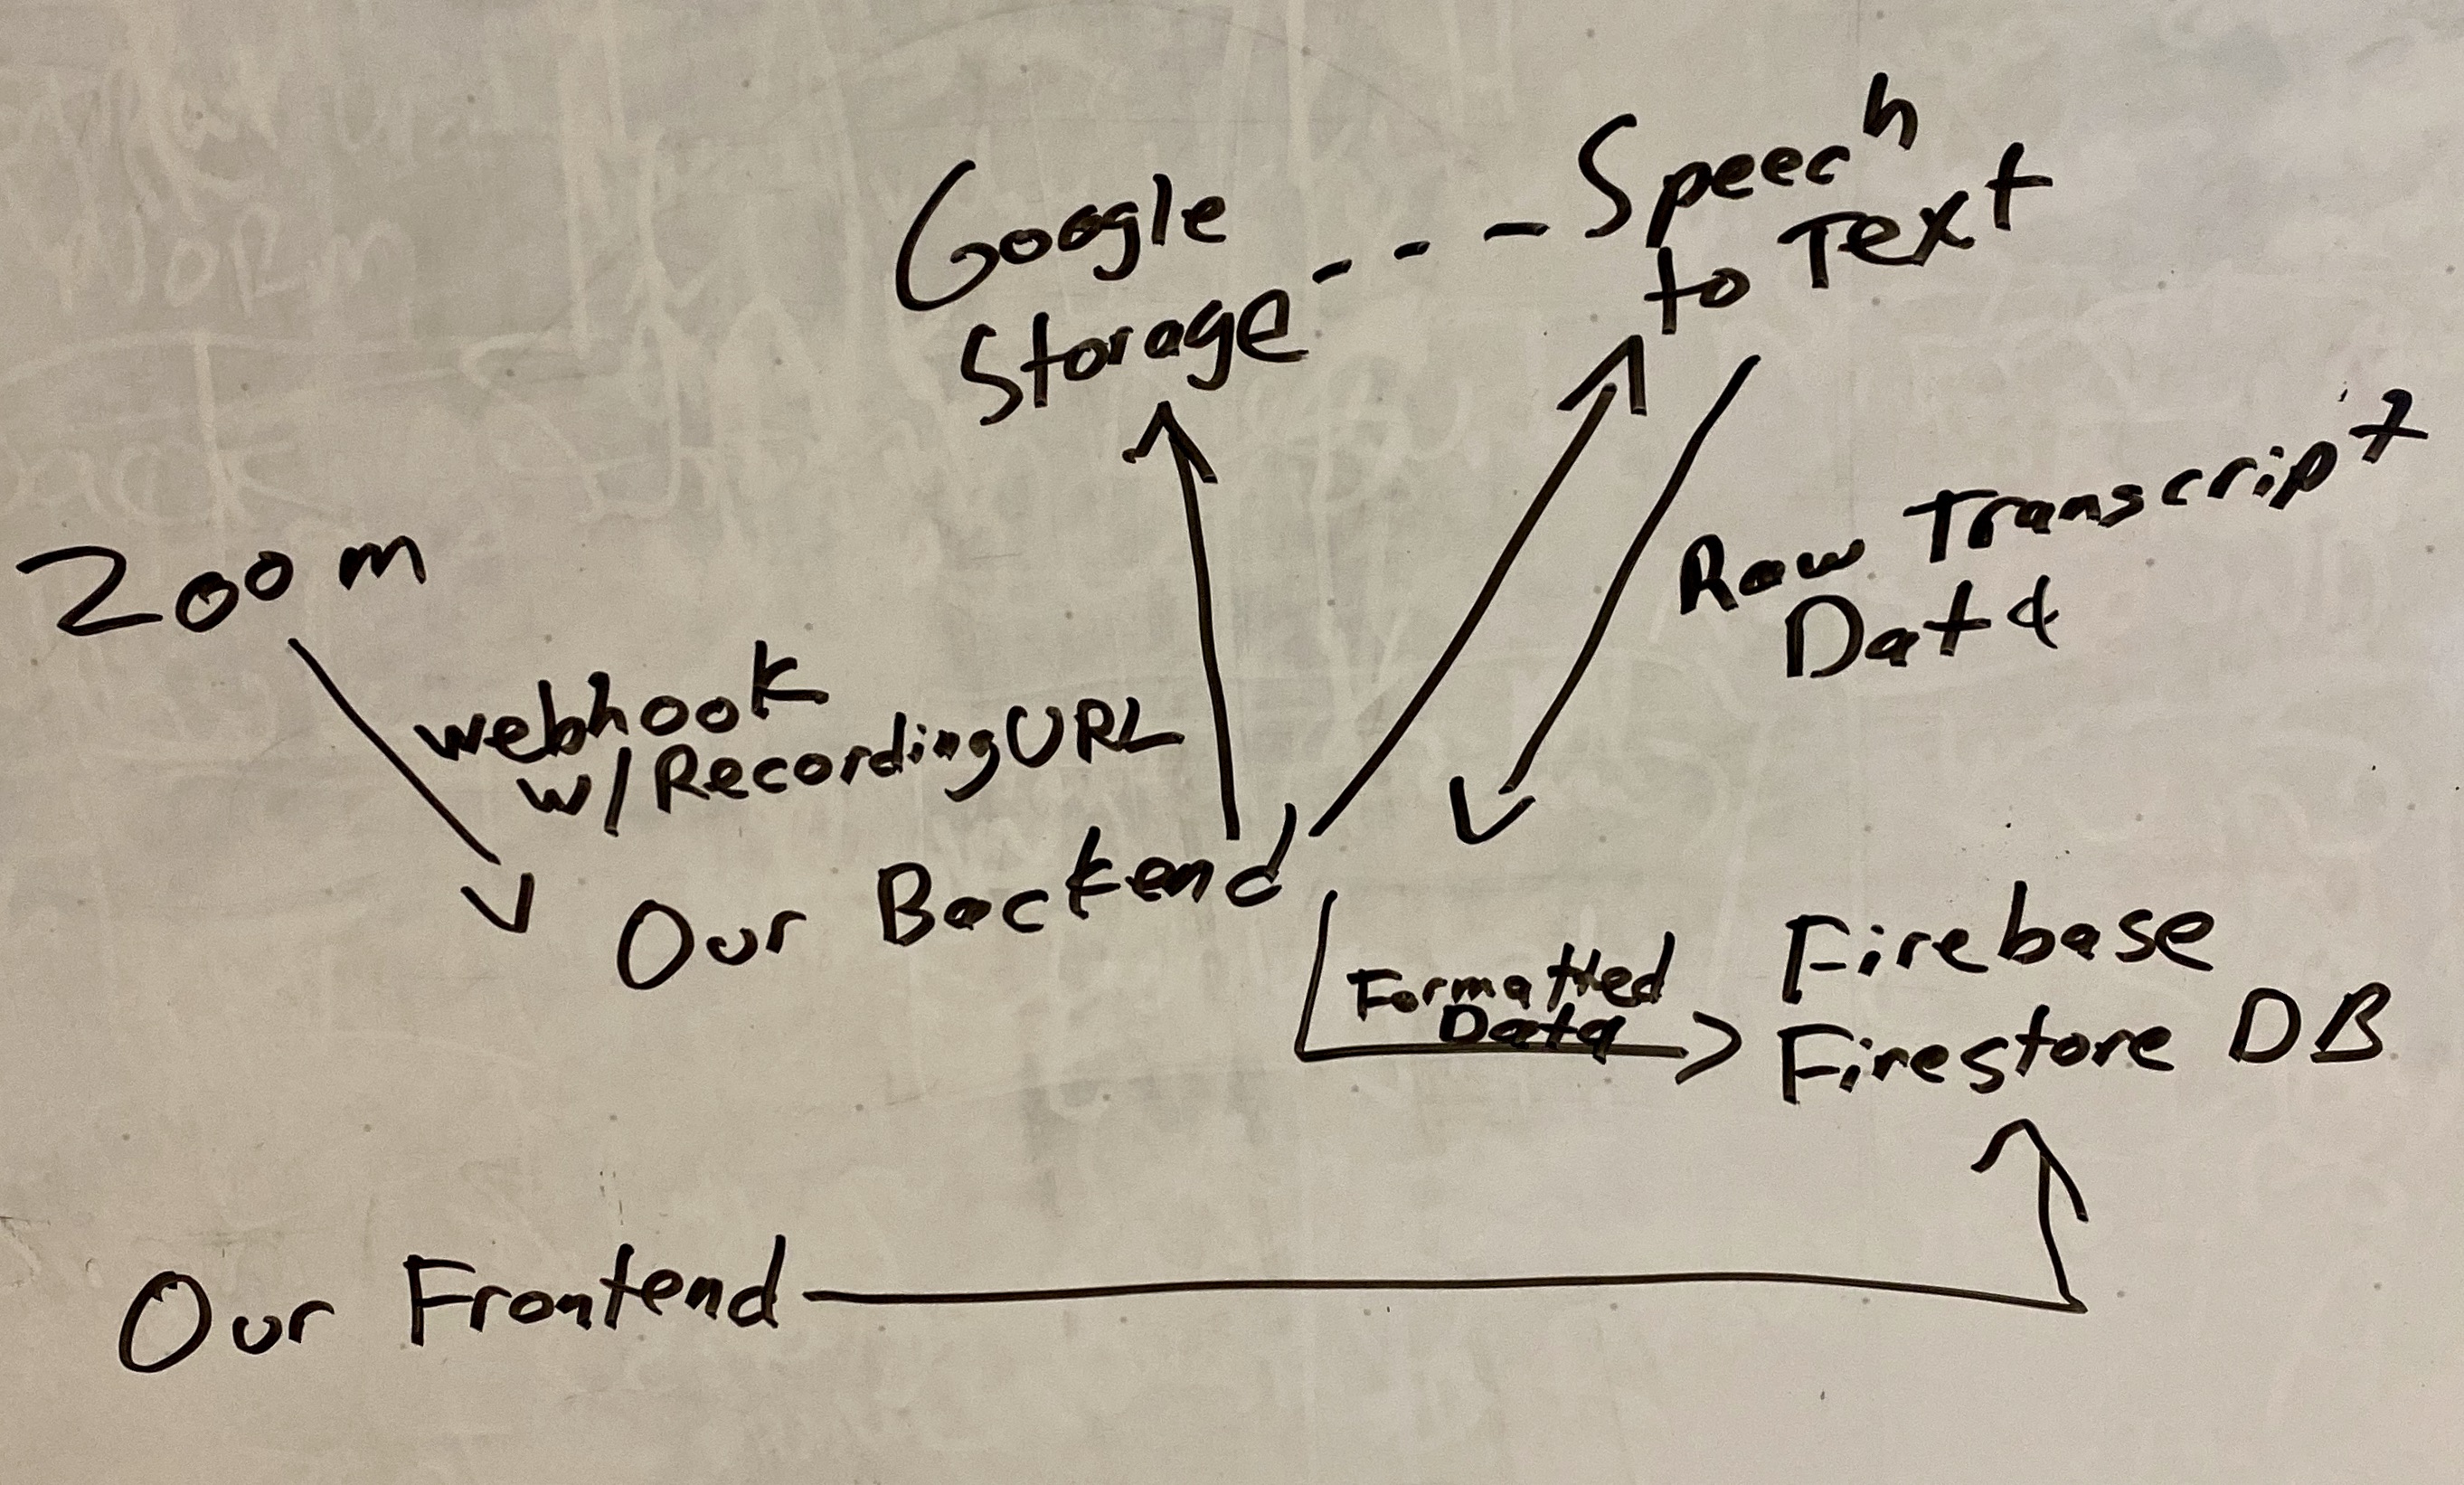 Google
Storage
Speech
to Text
Zoom
webhook
w/RecordingURL
Raw Transcript
Data
Our Backend
Formatted
Data
Firebase
Firestore DB
Our Frontend